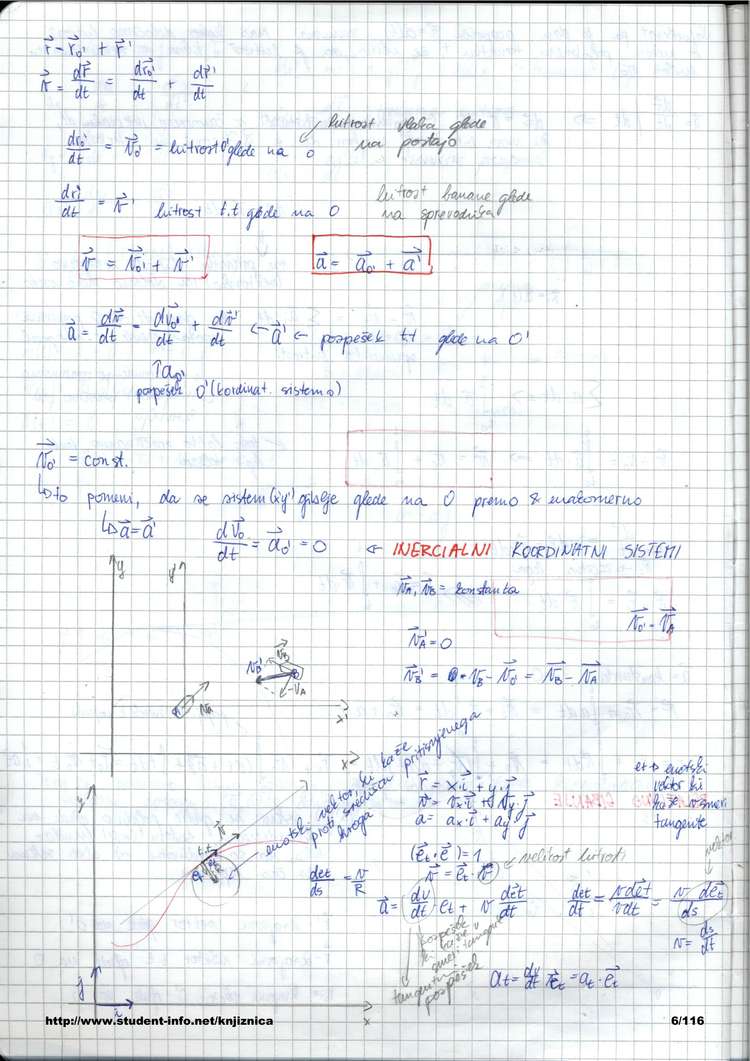 r⃗ = r⃗₀' + r⃗'
v⃗ = dr⃗/dt = dr⃗₀'/dt + dr⃗'/dt
dr₀'/dt = v⃗₀' = hitrost 0' glede na 0
hitrost vlaka glede na postajo
dr'/dt = v⃗' hitrost t.t glede na 0
hitrost banane glede na sprevodnika
v⃗ = v⃗₀' + v⃗'
a⃗ = a⃗₀' + a⃗'
a⃗ = dv⃗/dt = dv⃗₀'/dt + dv⃗'/dt ← a⃗' ← pospešek t.t glede na 0'
↑a₀'
pospešek 0' (kordinat. sistema)
v⃗₀' = const.
↳ to pomeni, da se sistem (x'y') giblje glede na 0 premo & enakomerno
↳ a⃗ = a⃗' dv⃗₀/dt = a⃗₀' = 0 ← INERCIALNI KOORDINATNI SISTEMI
y y'
v⃗A, v⃗B = konstanta
v⃗₀' = v⃗A
v⃗A' = 0
v⃗B' = vB - v⃗₀' = v⃗B - v⃗A
v⃗B
v⃗B'
-vA
vA
x'
x
enotski vektor, ki kaže proti središču pritisnjenega kroga
y
v⃗
t.t
et
R
r⃗ = x·i⃗ + y·j⃗
v⃗ = vx·i⃗ + vy·j⃗
a = ax·i⃗ + ay·j⃗
et → enotski vektor ki kaže v smeri tangente
(e⃗t·e⃗) = 1
v⃗ = e⃗t·v
velikost hitrosti
vektor
det/ds = v/R
a⃗ = dv/dt et + v de⃗t/dt
det/dt = v de⃗t/v dt = v de⃗t/ds
v = ds/dt
pospešek ki kaže v smeri tangente
tangentni pospešek
at = dv/dt e⃗t = at·e⃗t
j
i
x
http://www.student-info.net/knjiznica
6/116